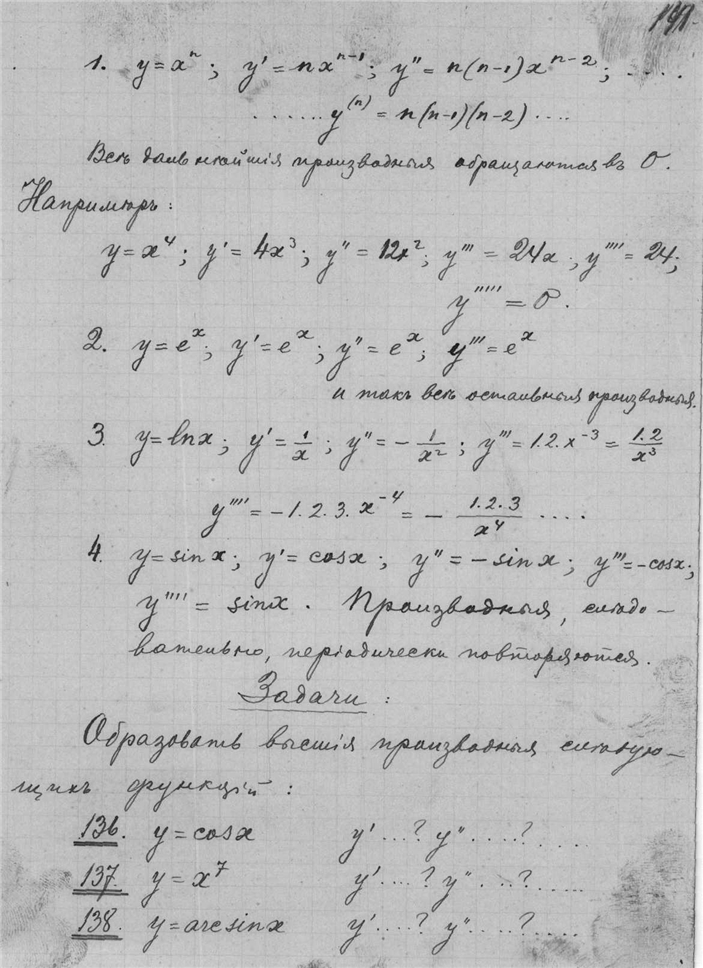 1. y=xⁿ; y'=nxⁿ⁻¹; y''=n(n-1)xⁿ⁻²; ....
...... y⁽ⁿ⁾=n(n-1)(n-2)....
Всѣ дальнѣйшія производныя обращаются въ 0.
Напримѣръ:
y=x⁴; y'=4x³; y''=12x²; y'''=24x; y''''=24;
y'''''=0.
2. y=eˣ; y'=eˣ; y''=eˣ; y'''=eˣ
и такъ всѣ остальныя производныя.
3. y=lnx; y'=1/x; y''=-1/x²; y'''=1.2.x⁻³=1.2/x³
y''''=-1.2.3.x⁻⁴=-1.2.3/x⁴ ....
4. y=sinx; y'=cosx; y''=-sinx; y'''=-cosx;
y''''=sinx. Производныя, слѣдо-
вательно, періодически повторяются.
Задачи:
Образовать высшія производныя слѣдую-
щихъ функцій:
136. y=cosx y'...? y''....?.....
137. y=x⁷ y'....? y''....?.....
138. y=arcsinx y'....? y''....?.....